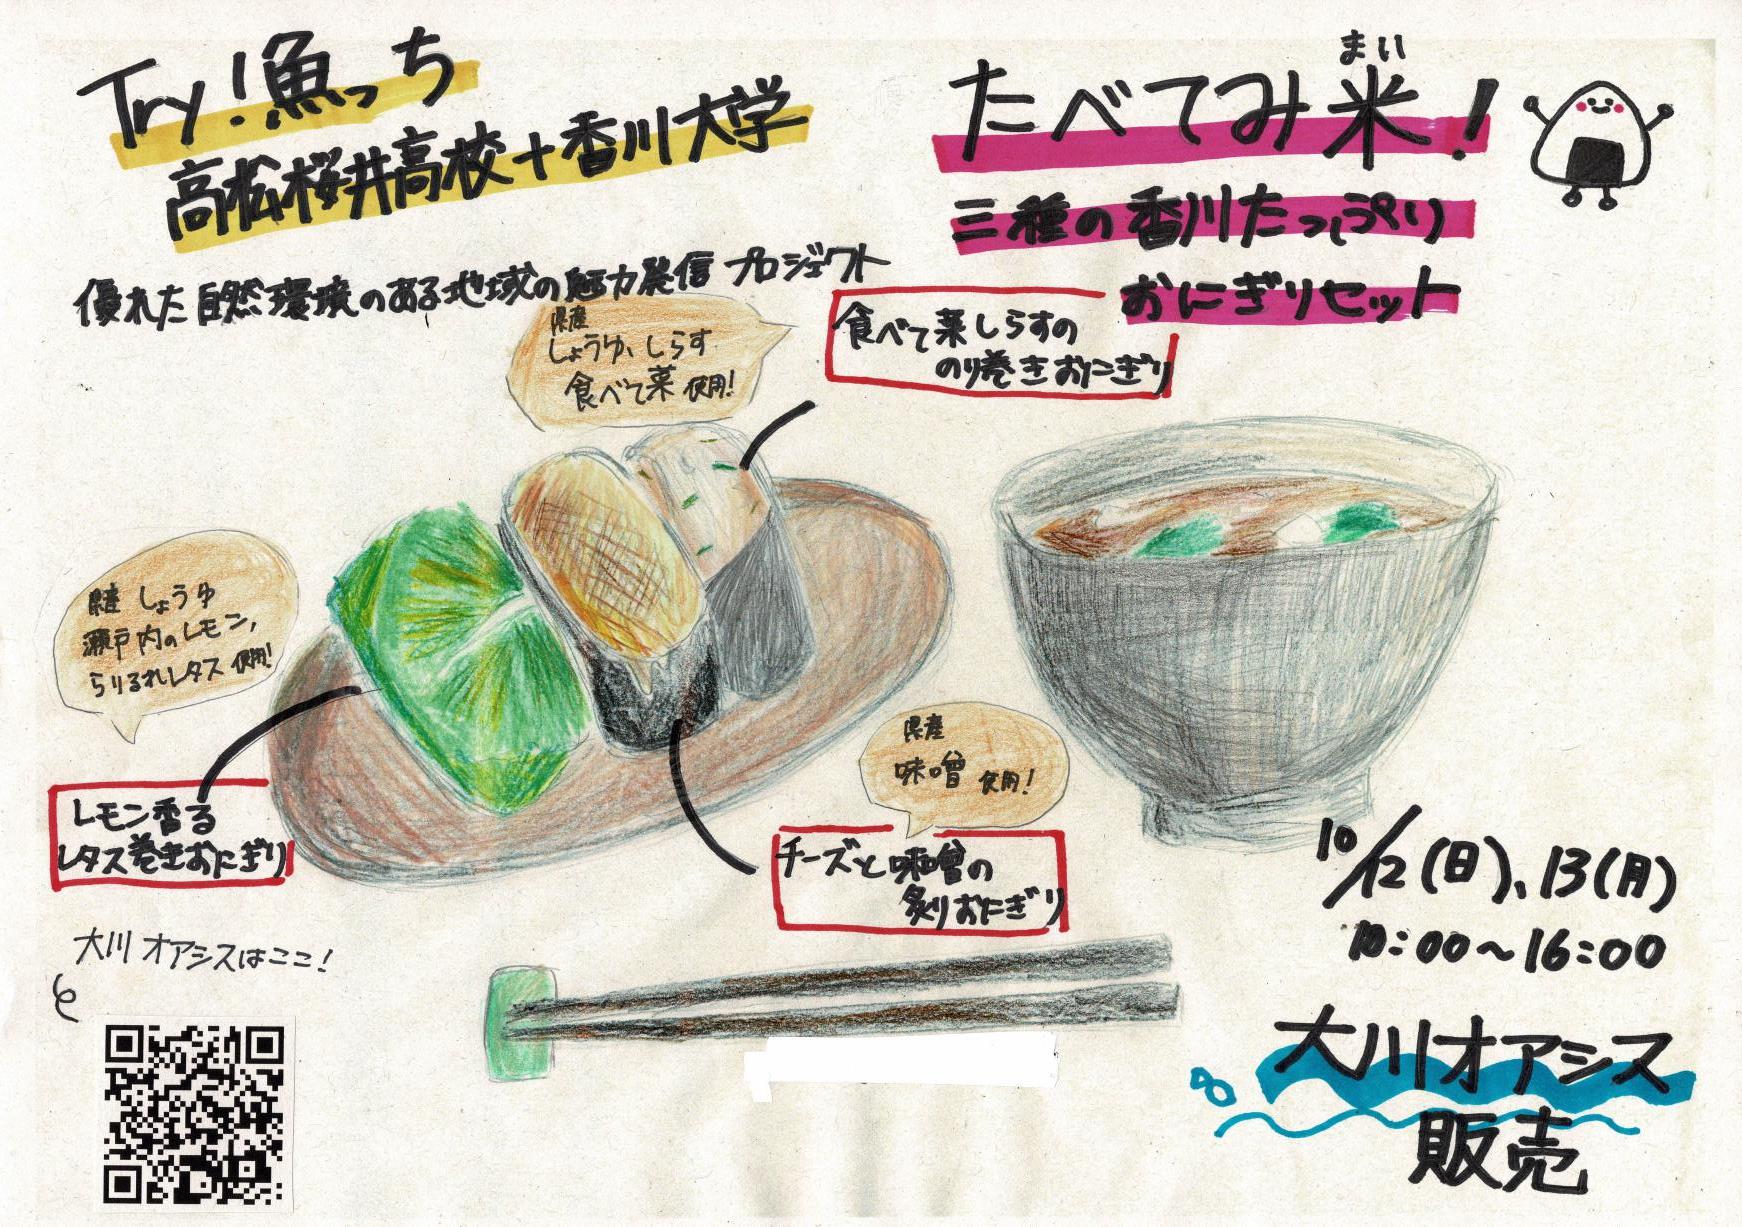 Try!魚っち
高松桜井高校+香川大学
優れた自然環境のある地域の魅力発信プロジェクト
まい
たべてみ米!
三種の香川たっぷり
おにぎりセット
県産
しょうゆ、しらす
食べて菜 使用!
食べて菜しらすの
のり巻きおにぎり
県産 しょうゆ
瀬戸内のレモン,
らりるれレタス 使用!
レモン香る
レタス巻きおにぎり
県産
味噌 使用!
チーズと味噌の
炙りおにぎり
10/12(日)、13(月)
10:00~16:00
大川オアシス
販売
大川オアシスはここ!